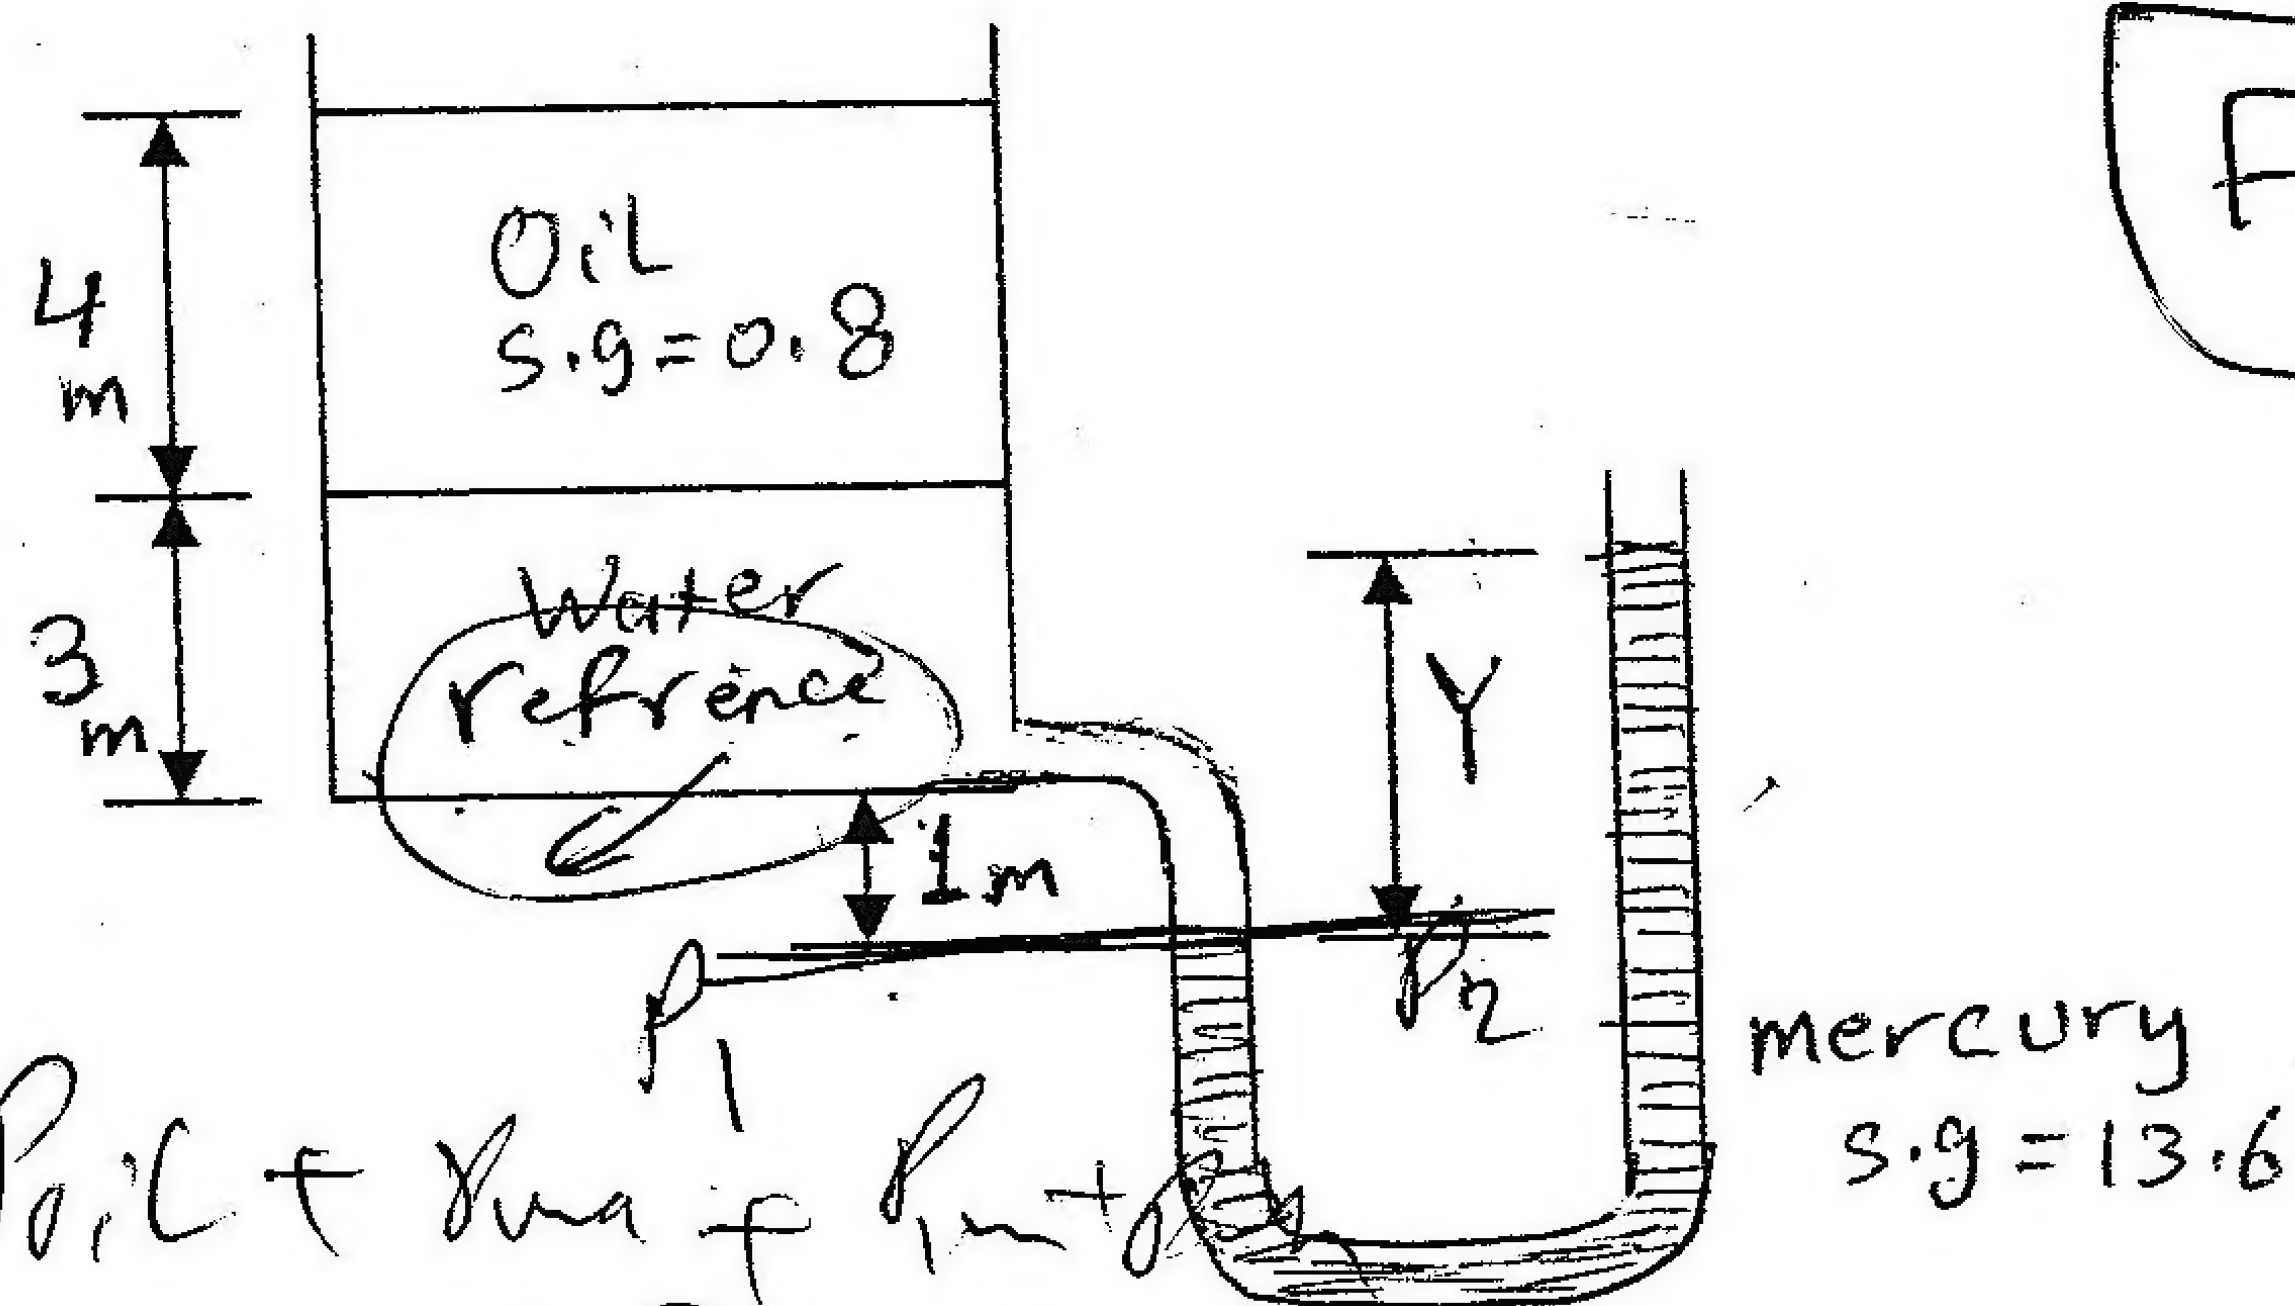 F
4
m
Oil
s.g=0.8
3
m
Water
refrence
Y
1m
P1
P2
mercury
s.g=13.6
Poil + γwa + P1m +